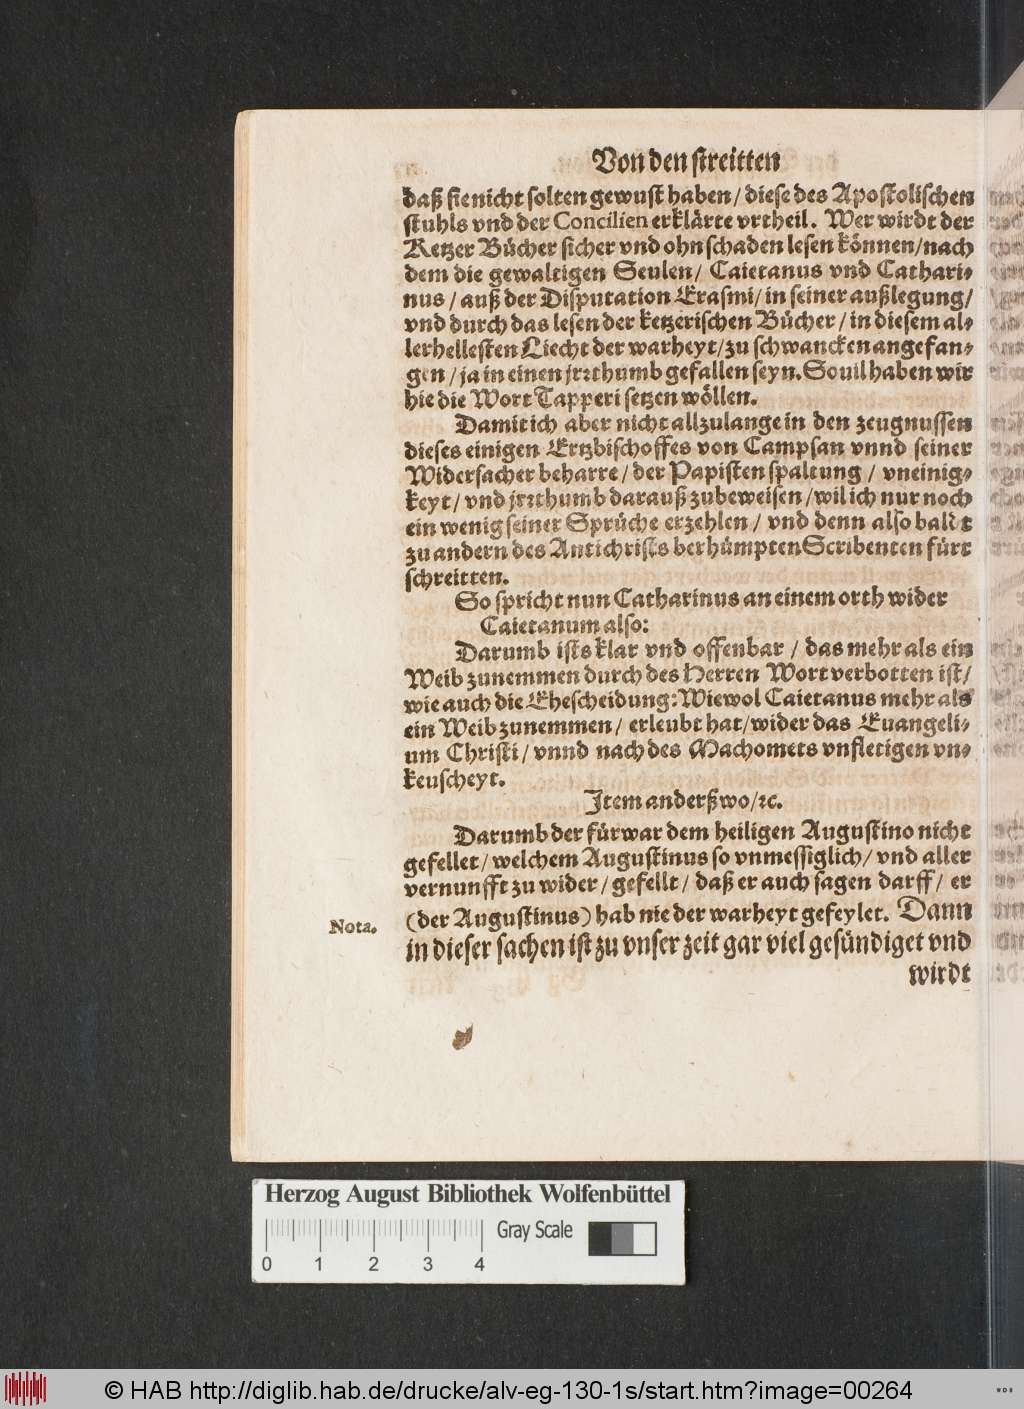 Von den streitten
daß sie nicht solten gewust haben / diese des Apostolischen
stuhls vnd der Concilien erklärte vrtheil. Wer wirdt der
Ketzer Bücher sicher vnd ohn schaden lesen können/nach
dem die gewaltigen Seulen/ Caietanus vnd Cathari-
nus / auß der Disputation Erasmi/ in seiner außlegung/
vnd durch das lesen der ketzerischen Bücher / in diesem al-
lerhellesten Liecht der warheyt/zu schwancken angefan-
gen / ja in einen jrꝛthumb gefallen seyn. Souil haben wir
hie die Wort Tapperi setzen wöllen.
Damit ich aber nicht allzulange in den zeugnussen
dieses einigen Ertzbischoffes von Campsan vnnd seiner
Widersacher beharre / der Papisten spaltung / vneinig-
keyt / vnd jrꝛthumb darauß zubeweisen / wil ich nur noch
ein wenig seiner Sprüche erzehlen / vnd denn also baldt
zu andern des Antichrists berhümpten Scribenten fürt
schreitten.
So spricht nun Catharinus an einem orth wider
Caietanum also:
Darumb ists klar vnd offenbar / das mehr als ein
Weib zunemmen durch des Herren Wort verbotten ist/
wie auch die Ehescheidung: Wiewol Caietanus mehr als
ein Weib zunemmen/ erleubt hat/wider das Euangeli-
um Christi / vnnd nach des Machomets vnfletigen vn-
keuscheyt.
Item anderßwo/ꝛc.
Darumb der fürwar dem heiligen Augustino nicht
gefellet/ welchem Augustinus so vnmessiglich/ vnd aller
vernunfft zu wider / gefellt / daß er auch sagen darff/ er
(der Augustinus) hab nie der warheyt gefeylet. Dann
Nota.
in dieser sachen ist zu vnser zeit gar viel gesündiget vnd
wirdt
Herzog August Bibliothek Wolfenbüttel
Gray Scale
0 1 2 3 4
© HAB http://diglib.hab.de/drucke/alv-eg-130-1s/start.htm?image=00264